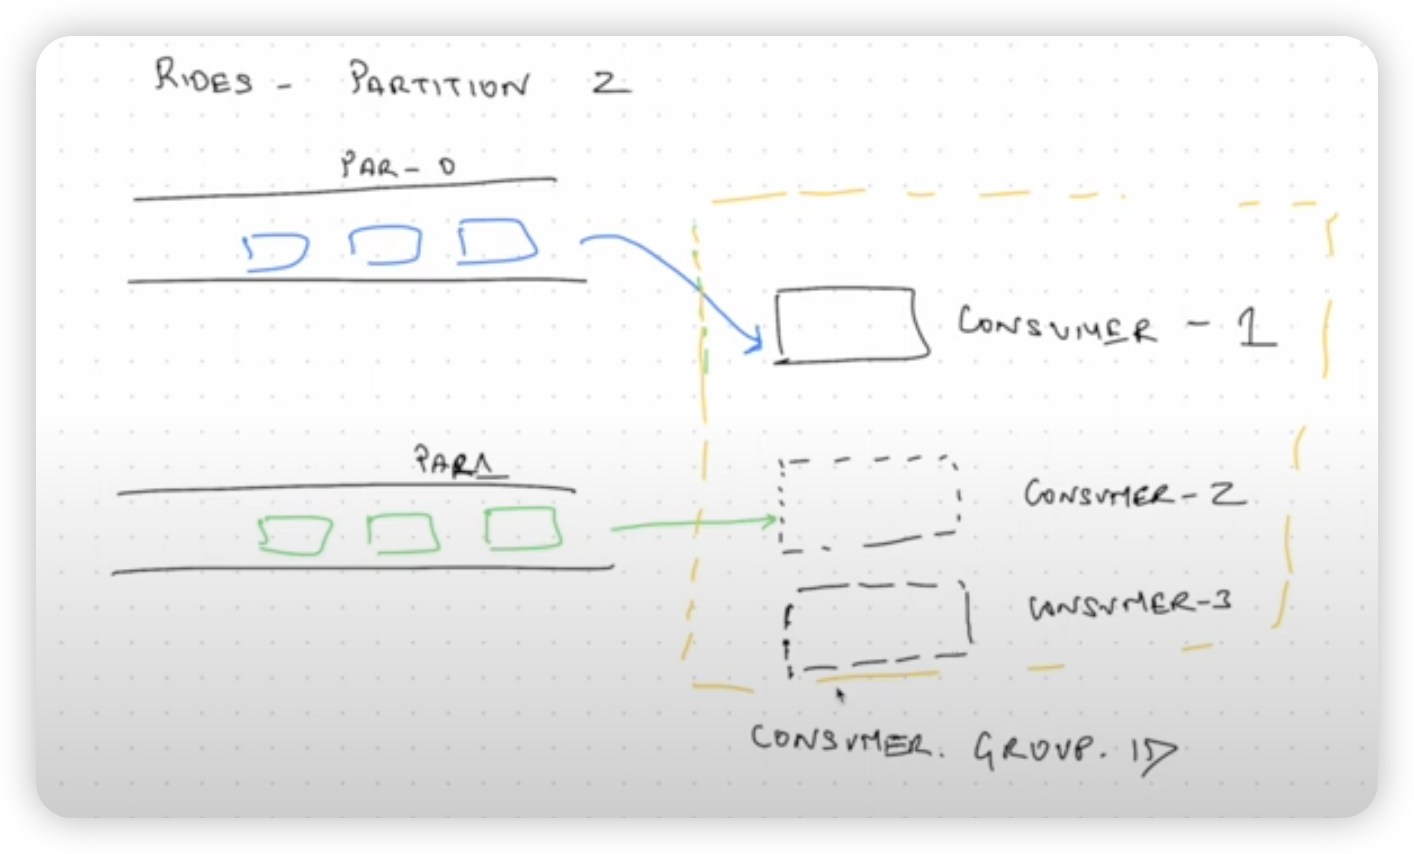 RIDES - PARTITION 2
PAR - 0
CONSUMER - 1
PAR 1
CONSUMER - 2
CONSUMER - 3
CONSUMER. GROUP. ID